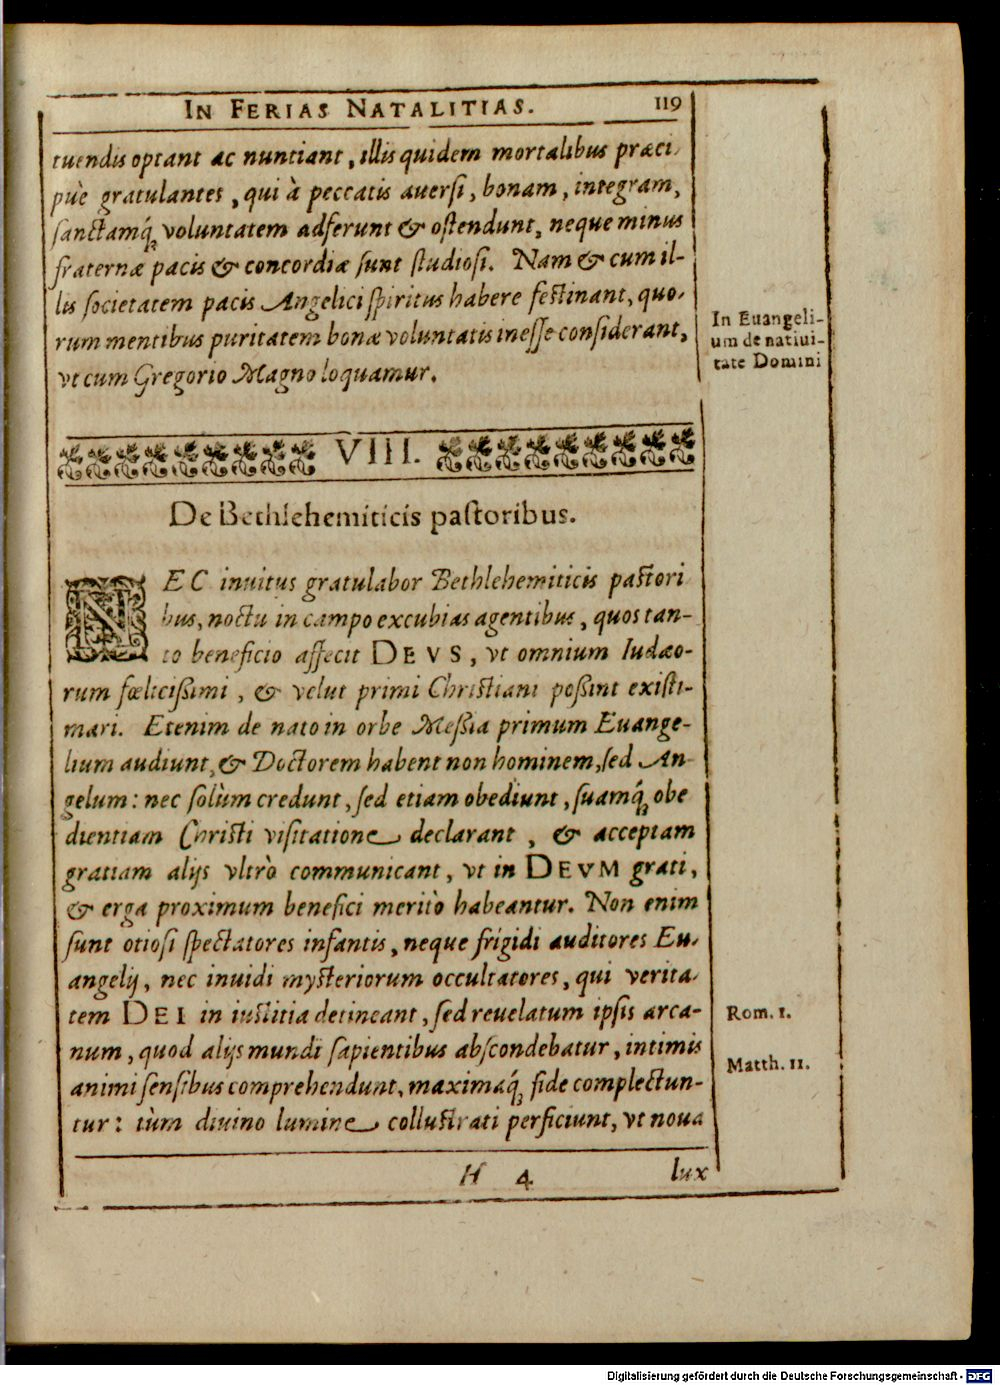 IN FERIAS NATALITIAS. 119
tuendis optant ac nuntiant, illis quidem mortalibus præci-
puè gratulantes, qui à peccatis auersi, bonam, integram,
sanctamq́; voluntatem adferunt & ostendunt, neque minus
fraternæ pacis & concordiæ sunt studiosi. Nam & cum il-
lis societatem pacis Angelici spiritus habere festinant, quo-
rum mentibus puritatem bonæ voluntatis inesse considerant,
vt cum Gregorio Magno loquamur.
In Euangeli-
um de natiui-
tate Domini
VIII.
De Bethlehemiticis pastoribus.
NEC inuitus gratulabor Bethlehemiticis pastori
bus, noctu in campo excubias agentibus, quos tan-
to beneficio affecit DEVS, vt omnium Iudæo-
rum fœlicißimi, & velut primi Christiani poßint existi-
mari. Etenim de nato in orbe Meßia primum Euange-
lium audiunt, & Doctorem habent non hominem, sed An-
gelum: nec solùm credunt, sed etiam obediunt, suamq́; obe
dientiam Christi visitatione declarant, & acceptam
gratiam alijs vltrò communicant, vt in DEVM grati,
& erga proximum benefici meritò habeantur. Non enim
sunt otiosi spectatores infantis, neque frigidi auditores Eu-
angelij, nec inuidi mysteriorum occultatores, qui verita-
tem DEI in iustitia detineant, sed reuelatum ipsis arca-
num, quod alijs mundi sapientibus abscondebatur, intimis
animi sensibus comprehendunt, maximaq́; fide complectun-
tur: tùm diuino lumine collustrati perficiunt, vt noua
Rom. 1.
Matth. 11.
H 4 lux
Digitalisierung gefördert durch die Deutsche Forschungsgemeinschaft - DFG